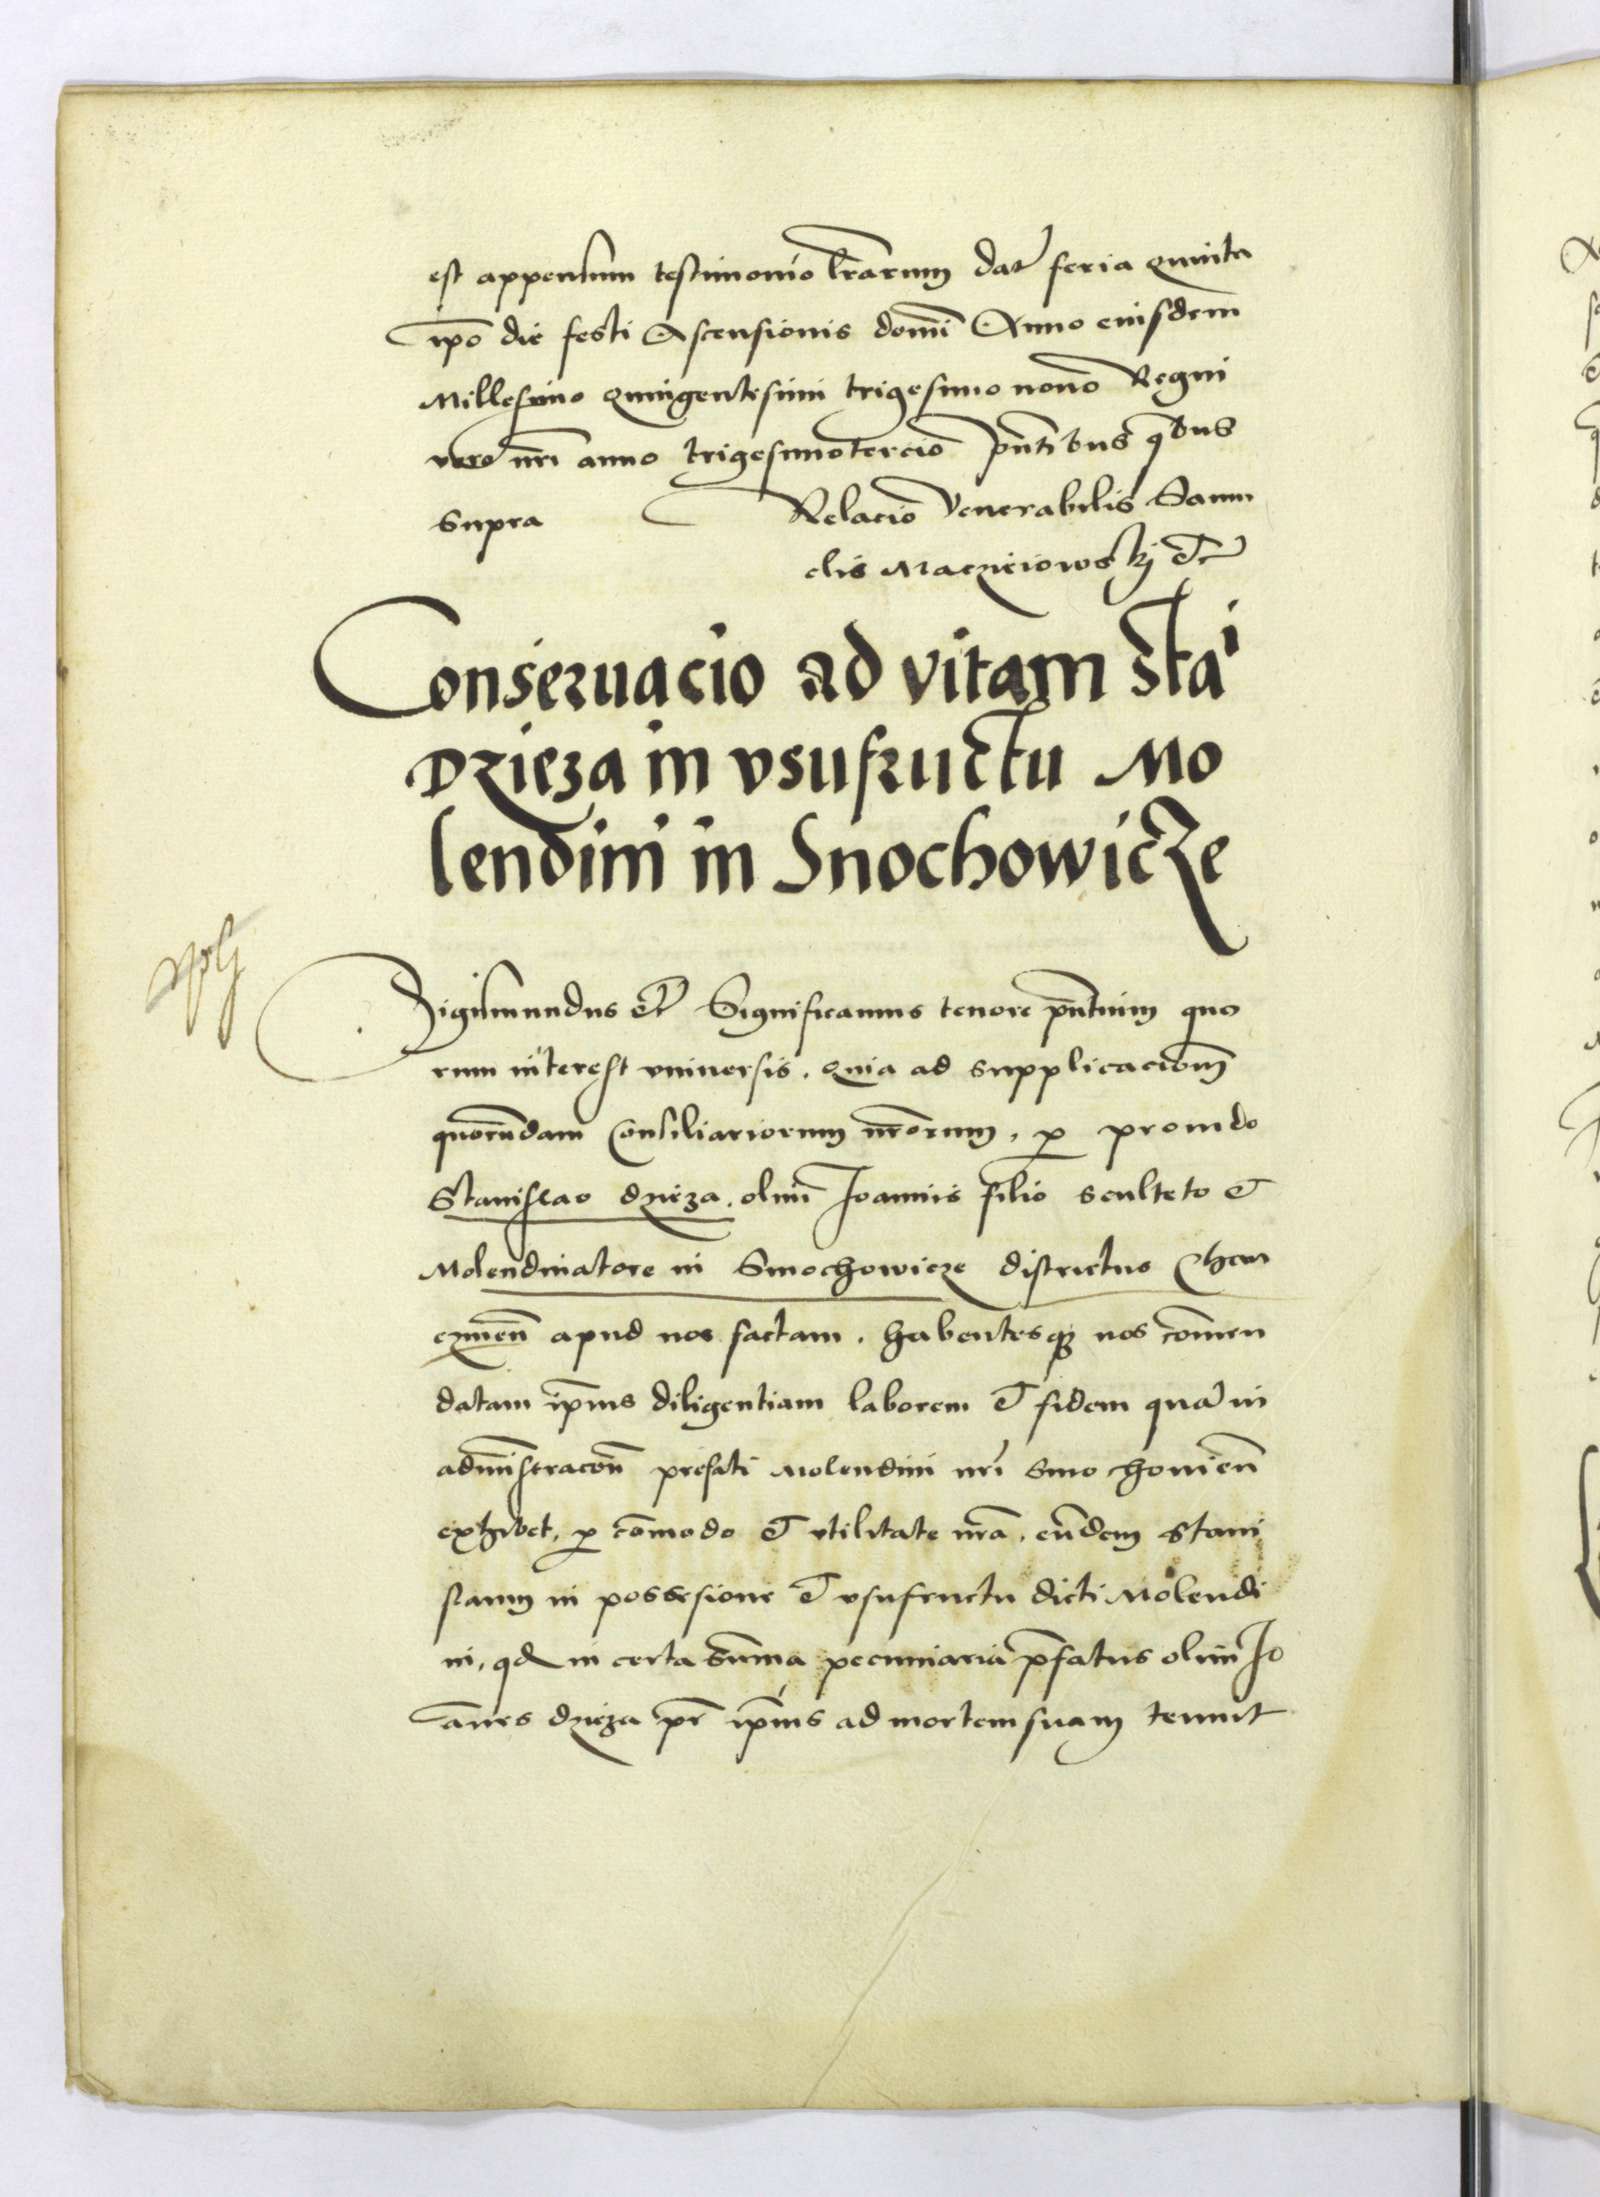 est appensum testimonio l̄rarum dat̄ feria quinta
ip̄o die festi Ascensionis domī Anno eiusdem
Millesimo quingentesimi trigesimo nono Regni
vero nr̄i anno trigesimotercio p̄ntibus qbus
supra Relacio Venerabilis Samu
elis Macziciowskj et̄
Conseruacio ad vitam sta i
Dzieza in vsufructu Mo
lendini in Snochowicze
Sigismundus et̄ Significamus tenore p̄ntium quo
rum interest vniuersis. quia ad supplicaciom̄
quorūdam Consiliariorum nr̄orum, p prouido
Stanislao dzieza. olim Joannis filio sculteto et
Molendinatore in Snochowicze districtus Chan
czinen̄ apud nos factam. habentesq̨ nos com̄en
datam ip̄ius diligentiam laborem et fidem quā in
admīstracōn̄ prefati Molendini nr̄i Snochouien̄
exhibet, p com̄odo et vtilitate nr̄a. eūdem Stani
slaum in possesione et vsufructu dicti Molendi
ni, qd in certa sum̄a pecuniaria p̄fatus olim Jo
annes dzieza pr̄ ip̄ius ad mortem suam tenuit